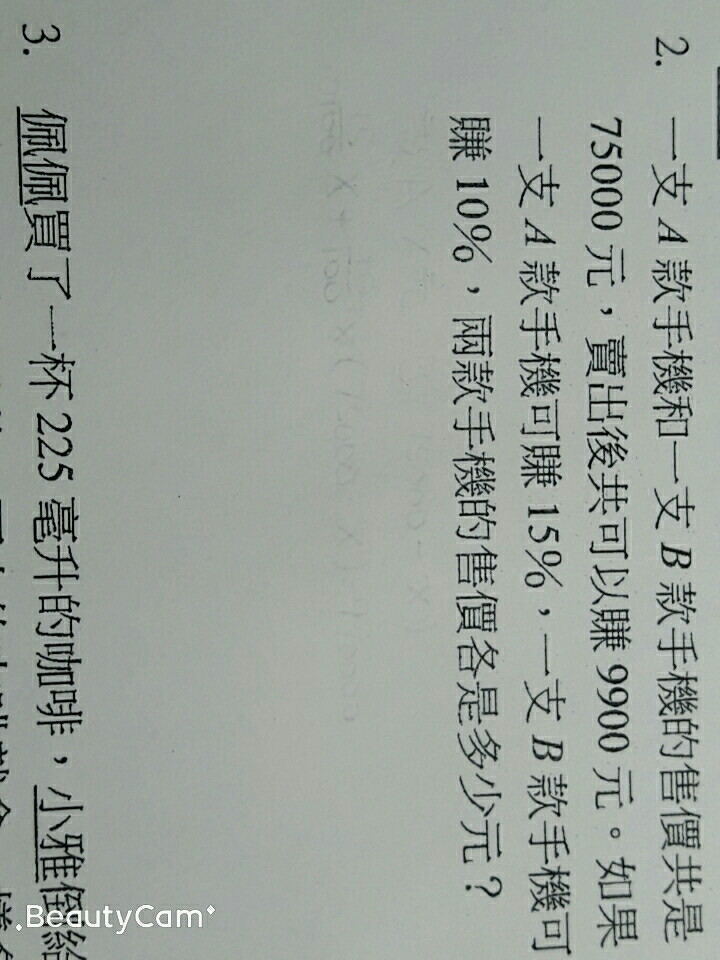 2. 一支 A 款手機和一支 B 款手機的售價共是
75000 元,賣出後共可以賺 9900 元。如果
一支 A 款手機可賺 15%,一支 B 款手機可
賺 10%,兩款手機的售價各是多少元?
3. 佩佩買了一杯 225 毫升的咖啡,小雅倒給
BeautyCam